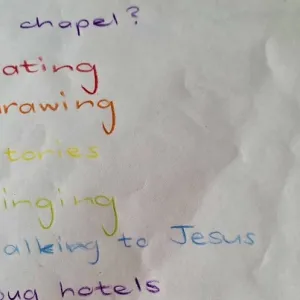 chapel?
ating
rawing
tories
inging
alking to Jesus
bug hotels